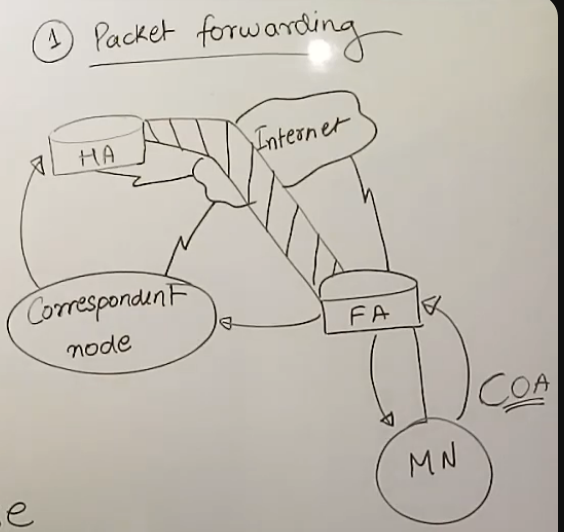 ① Packet forwarding
Internet
HA
Correspondent
node
FA
COA
MN
e